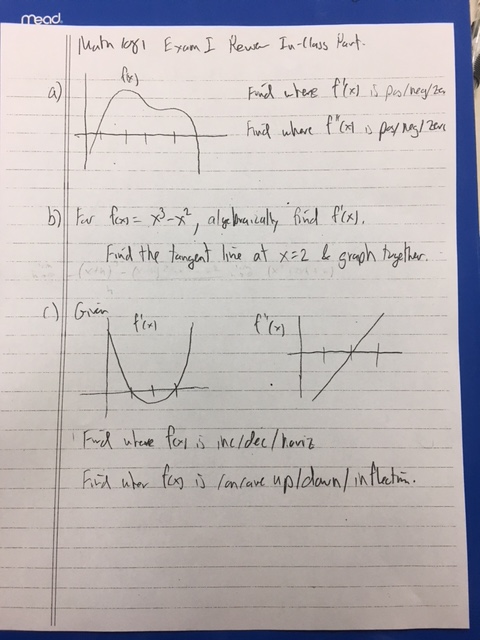 mead
Math 1081 Exam I Review In-Class Part.
a) f(x) Find where f'(x) is pos/neg/zer
Find where f''(x) is pos/neg/zero
b) For f(x) = x³-x², algebraically find f'(x).
Find the tangent line at x=2 & graph together.
c) Given f'(x) f''(x)
Find where f(x) is inc/dec/horiz
Find wher f(x) is concave up/down/inflection.